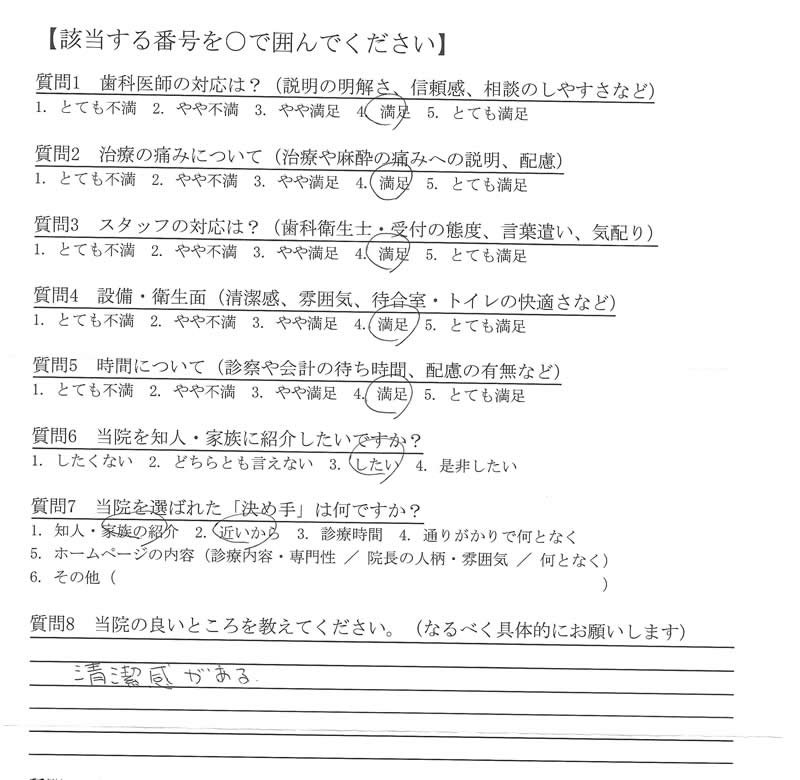 【該当する番号を○で囲んでください】
質問1　歯科医師の対応は？（説明の明解さ、信頼感、相談のしやすさなど）
1. とても不満　2. やや不満　3. やや満足　4. 満足　5. とても満足
質問2　治療の痛みについて（治療や麻酔の痛みへの説明、配慮）
1. とても不満　2. やや不満　3. やや満足　4. 満足　5. とても満足
質問3　スタッフの対応は？（歯科衛生士・受付の態度、言葉遣い、気配り）
1. とても不満　2. やや不満　3. やや満足　4. 満足　5. とても満足
質問4　設備・衛生面（清潔感、雰囲気、待合室・トイレの快適さなど）
1. とても不満　2. やや不満　3. やや満足　4. 満足　5. とても満足
質問5　時間について（診察や会計の待ち時間、配慮の有無など）
1. とても不満　2. やや不満　3. やや満足　4. 満足　5. とても満足
質問6　当院を知人・家族に紹介したいですか？
1. したくない　2. どちらとも言えない　3. したい　4. 是非したい
質問7　当院を選ばれた「決め手」は何ですか？
1. 知人・家族の紹介　2. 近いから　3. 診療時間　4. 通りがかりで何となく
5. ホームページの内容（診療内容・専門性 ／ 院長の人柄・雰囲気 ／ 何となく）
6. その他（　　　　　　　　　　　　　　　　　　　　　　　　　　　　　　）
質問8　当院の良いところを教えてください。（なるべく具体的にお願いします）
清潔感がある.